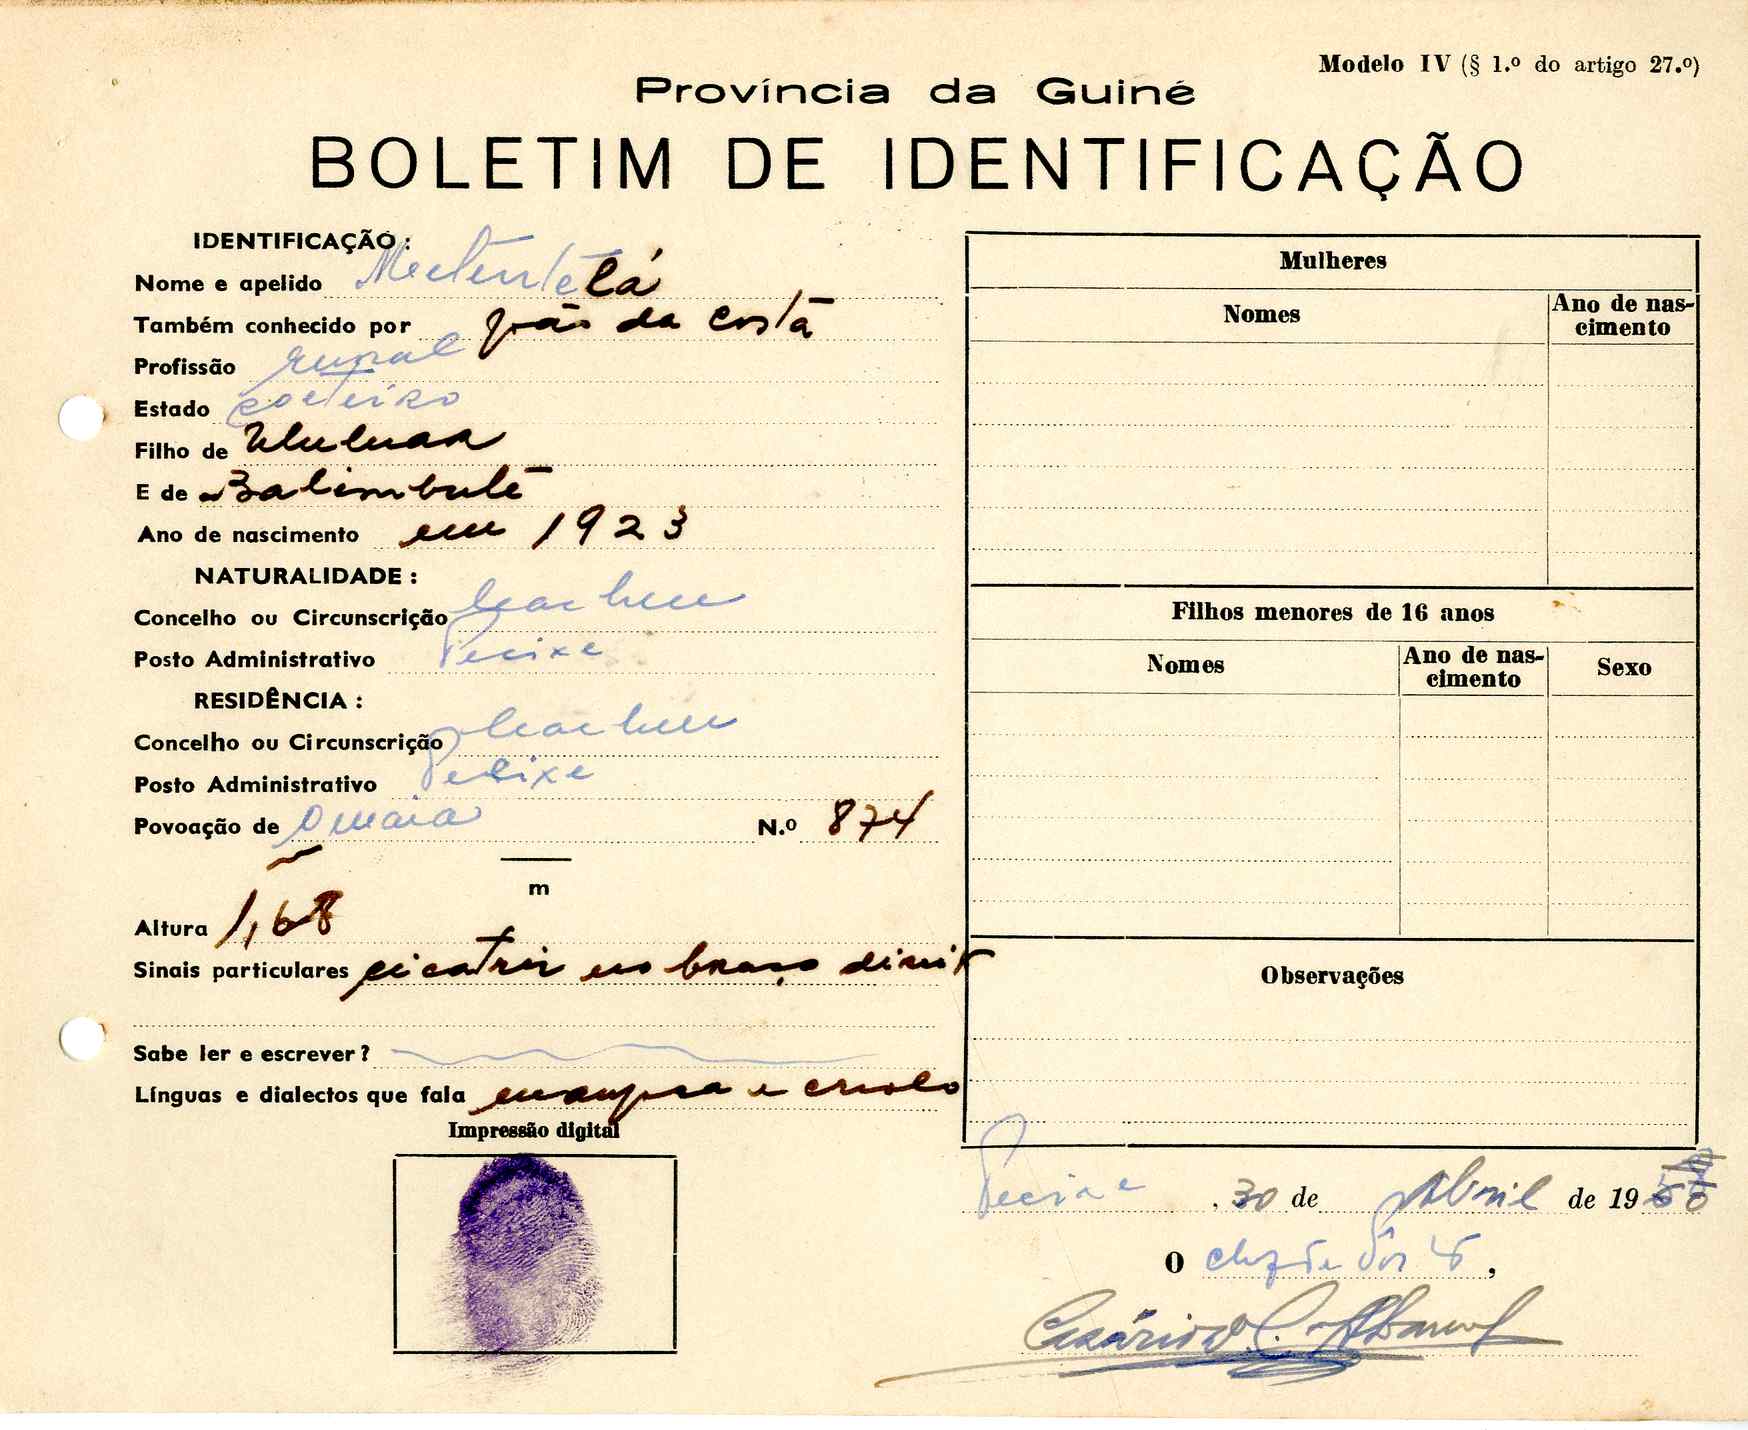 Modelo IV (§ 1.º do artigo 27.º)
Província da Guiné
BOLETIM DE IDENTIFICAÇÃO
IDENTIFICAÇÃO:
Nome e apelido
Também conhecido por João da Costa
Profissão rural
Estado solteiro
Filho de
E de Balimbute
Ano de nascimento em 1923
NATURALIDADE:
Concelho ou Circunscrição Cacheu
Posto Administrativo Pecixe
RESIDÊNCIA:
Concelho ou Circunscrição Cacheu
Posto Administrativo Pecixe
Povoação de N.º 874
m
Altura 1,68
Sinais particulares cicatriz no braço direit
Sabe ler e escrever?
Línguas e dialectos que fala manjaca e criolo
Impressão digital
Mulheres
Nomes
Ano de nas-
cimento
Filhos menores de 16 anos
Nomes
Ano de nas-
cimento
Sexo
Observações
Pecixe, 30 de Abril de 19
O chefe de Pôsto,